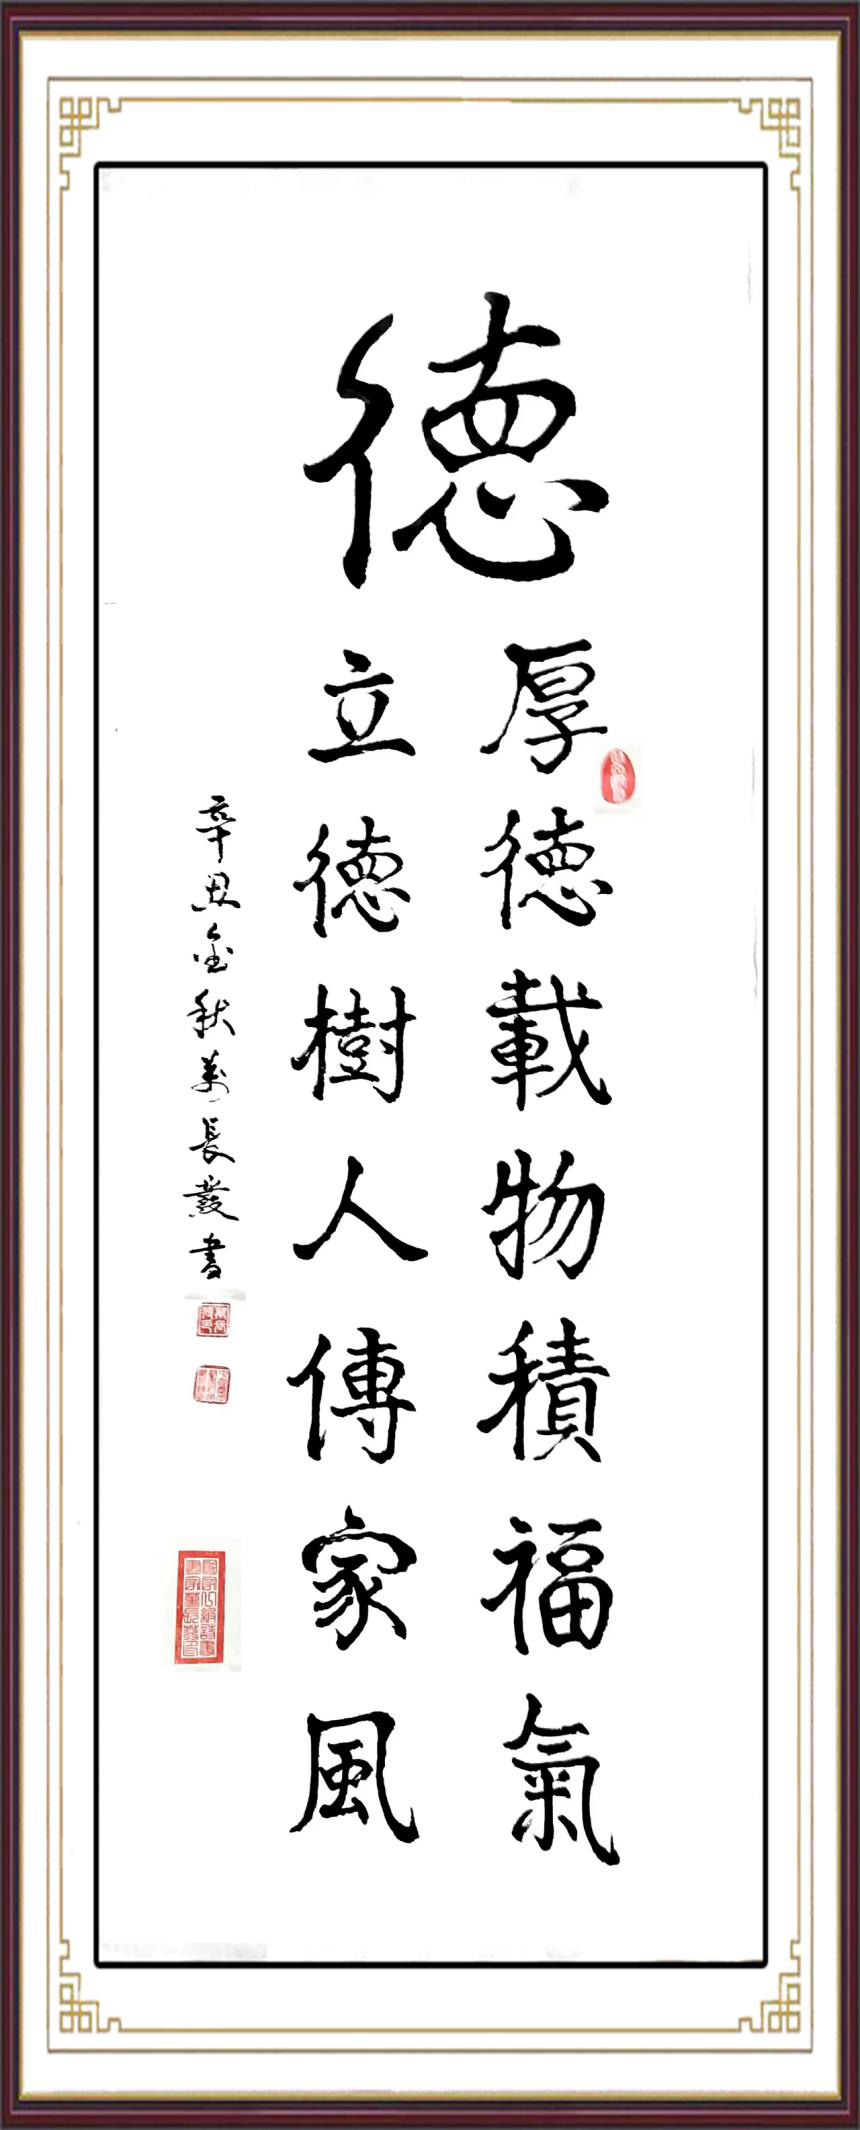 德
厚德載物積福氣
立德樹人傳家風
辛丑金秋萬長發書